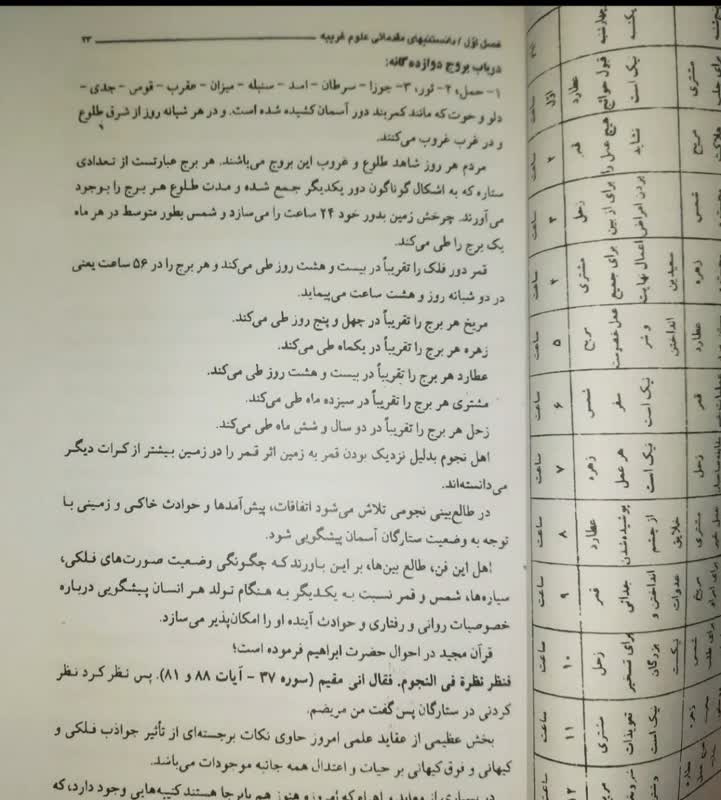 فصل اوّل / دانستنیهای مقدماتی علوم غریبه ـــــــــــــــــــــــــــــ ۲۳
درباب بروج دوازده گانه:
۱- حمل، ۲- ثور، ۳- جوزا - سرطان - اسد - سنبله - میزان - عقرب - قوس - جدی -
دلو و حوت که مانند کمربند دور آسمان کشیده شده است. و در هر شبانه روز از شرق طلوع
و در غرب غروب می‌کنند.
مردم هر روز شاهد طلوع و غروب این بروج می‌باشند. هر برج عبارتست از تعدادی
ستاره که به اشکال گوناگون دور یکدیگر جمع شده و مدت طلوع هر برج را بوجود
می‌آورند. چرخش زمین بدور خود ۲۴ ساعت را می‌سازد و شمس بطور متوسط در هر ماه
یک برج را طی می‌کند.
قمر دور فلک را تقریباً در بیست و هشت روز طی می‌کند و هر برج را در ۵۶ ساعت یعنی
در دو شبانه روز و هشت ساعت می‌پیماید.
مریخ هر برج را تقریباً در چهل و پنج روز طی می‌کند.
زهره هر برج را تقریباً در یکماه طی می‌کند.
عطارد هر برج را تقریباً در بیست و هشت روز طی می‌کند.
مشتری هر برج را تقریباً در سیزده ماه طی می‌کند.
زحل هر برج را تقریباً در دو سال و شش ماه طی می‌کند.
اهل نجوم بدلیل نزدیک بودن قمر به زمین اثر قمر را در زمین بیشتر از کرات دیگر
می‌دانسته‌اند.
در طالع‌بینی نجومی تلاش می‌شود اتفاقات، پیش‌آمدها و حوادث خاکی و زمینی با
توجه به وضعیت ستارگان آسمان پیشگویی شود.
اهل این فن، طالع بین‌ها، بر این باورند که چگونگی وضعیت صورت‌های فلکی،
سیاره‌ها، شمس و قمر نسبت به یکدیگر به هنگام تولد هر انسان پیشگویی درباره
خصوصیات روانی و رفتاری و حوادث آینده او را امکان‌پذیر می‌سازد.
قرآن مجید در احوال حضرت ابراهیم فرموده است؛
فنظر نظرة فی النجوم. فقال انی مقیم (سوره ۳۷ - آیات ۸۸ و ۸۱). پس نظر کرد نظر
کردنی در ستارگان پس گفت من مریضم.
بخش عظیمی از عقاید علمی امروز حاوی نکات برجسته‌ای از تأثیر جواذب فلکی و
کیهانی و فوق کیهانی بر حیات و اعتدال همه جانبه موجودات می‌باشد.
در بسیاری از معابد و اهرام که امروزه هنوز هم پابرجا هستند کتیبه‌هایی وجود دارد، که
چهارشنبه
یکشنبه
ساعت اوّل عطارد قبول حوائج نیک است مشتری
ساعت ۲ قمر هیچ عمل را نشاید مریخ
ساعت ۳ زحل برای از بین بردن امراض شمس
ساعت ۴ مشتری برای جمیع اعمال نهایت سعیدین زهره
ساعت ۵ مریخ عمل خصومت و شر انداختن عطارد
ساعت ۶ شمس سفر نیک است قمر
ساعت ۷ زهره هر عمل نیک است زحل
ساعت ۸ عطارد پوشیده‌شدن از چشم خلایق مشتری
ساعت ۹ قمر جدائی انداختن و عدوات مریخ
ساعت ۱۰ زحل برای تسخیر بزرگان نیکست شمس
ساعت ۱۱ مشتری تعویذات نیک است زهره